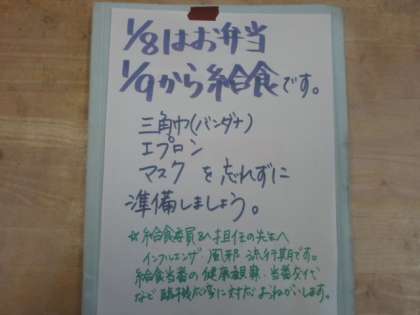 1/8はお弁当
1/9から給食です。
三角巾(バンダナ)
エプロン
マスク を忘れずに
準備しましょう。
☆給食委員&担任の先生へ
インフルエンザ 風邪 流行期です。
給食当番の健康観察・当番交代
など 臨機応変に対応おねがいします。